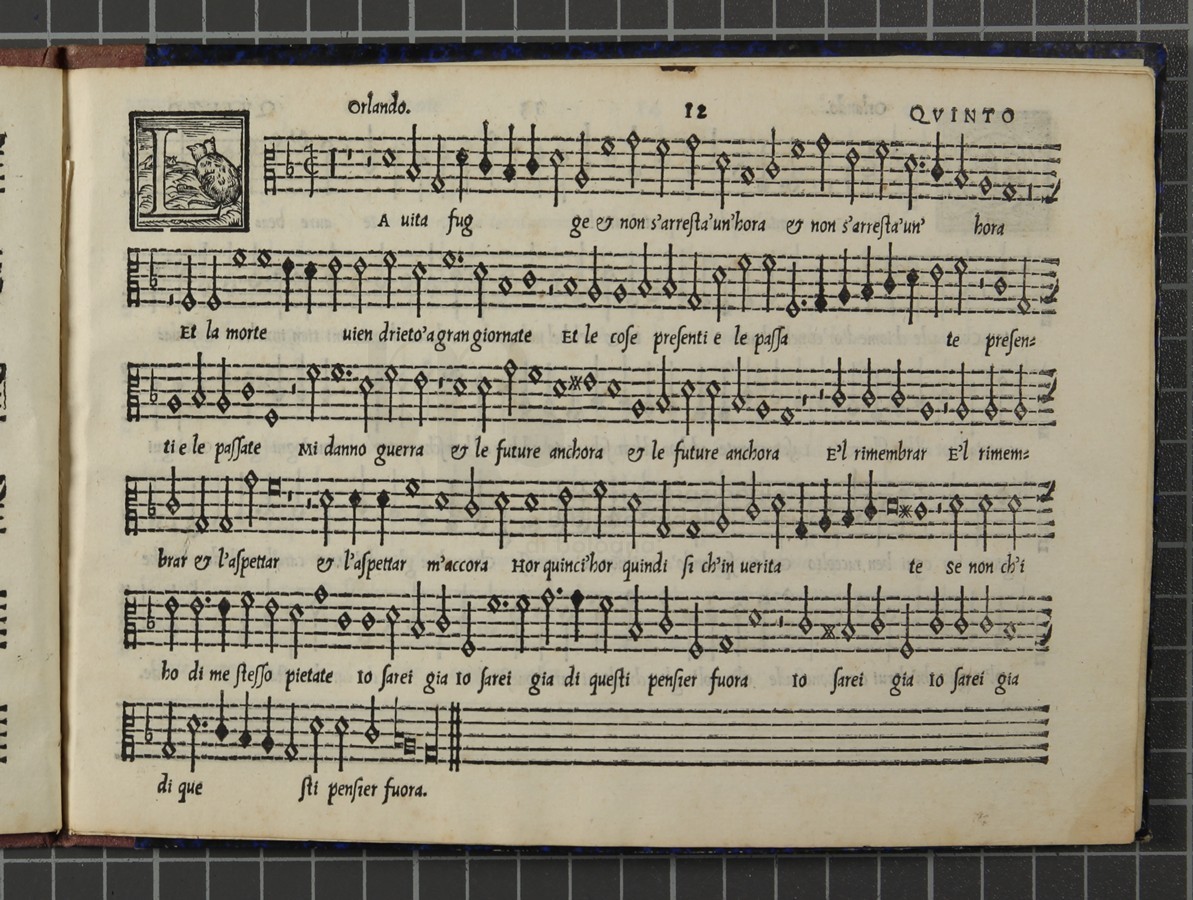 Orlando. 12 QVINTO
L
A uita fug ge & non s'arresta'un'hora & non s'arresta'un' hora
Et la morte uien drieto'a gran giornate Et le cose presenti e le passa te presen=
ti e le passate Mi danno guerra & le future anchora & le future anchora E'l rimembrar E'l rimem=
brar & l'aspettar & l'aspettar m'accora Hor quinci'hor quindi si ch'in uerita te Se non ch'i
ho di me stesso pietate Io sarei gia Io sarei gia di questi pensier fuora Io sarei gia Io sarei gia
di que sti pensier fuora.